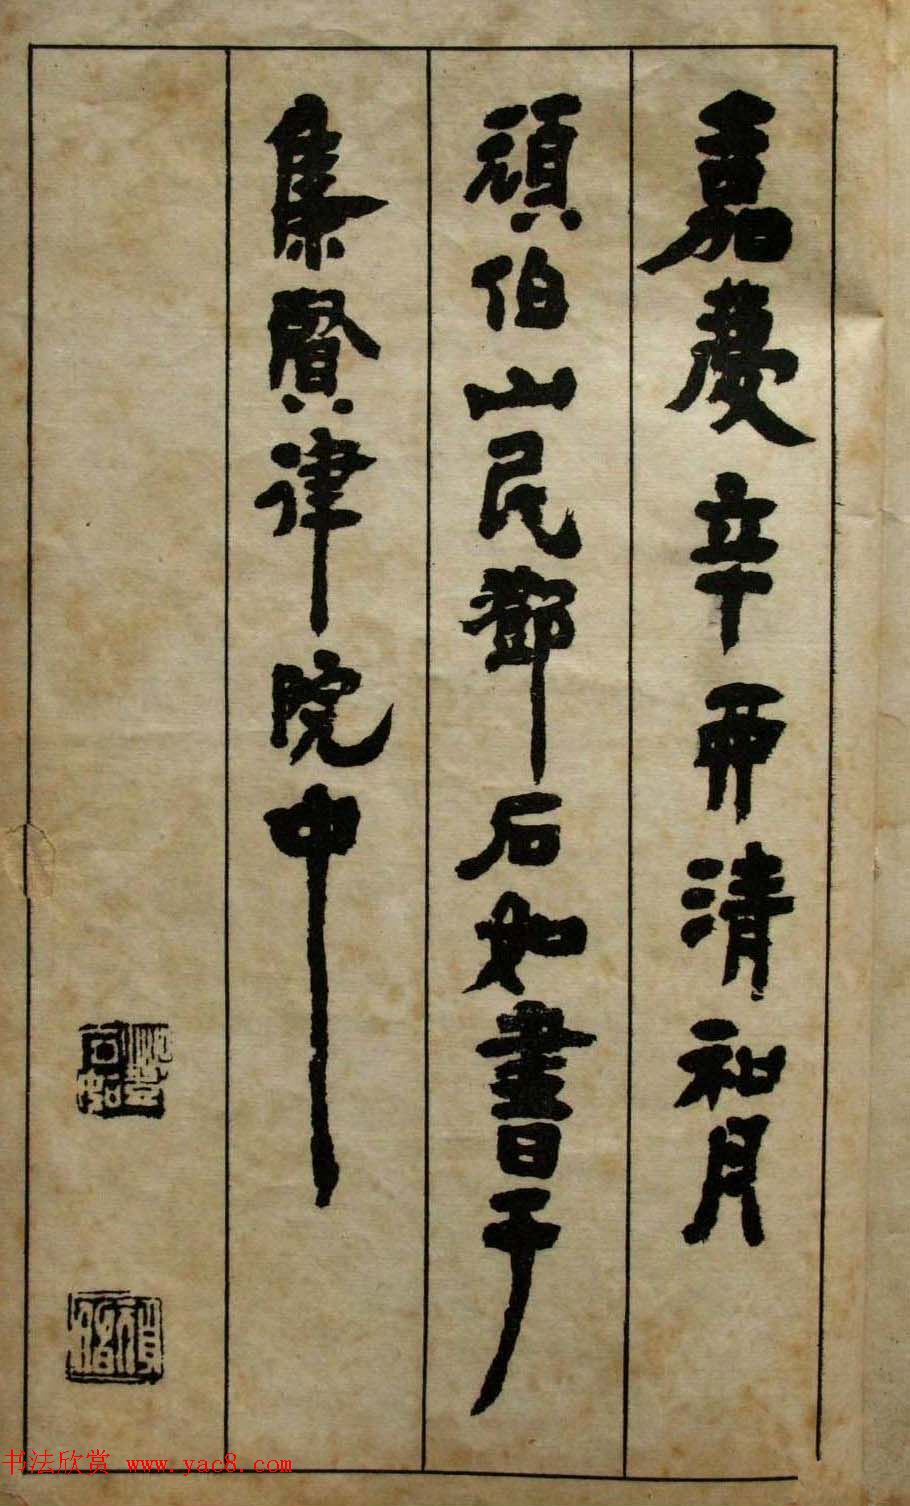 嘉慶辛酉清和月
頑伯山民鄧石如書于
集賢律院中
鄧石如
頑伯
书法欣赏 www.yac8.com